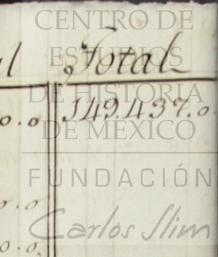 CENTRO DE
ESTUDIOS
DE HISTORIA
DE MÉXICO
FUNDACIÓN
Carlos Slim
l Total
o.o 149.437.o
o.o
o.o